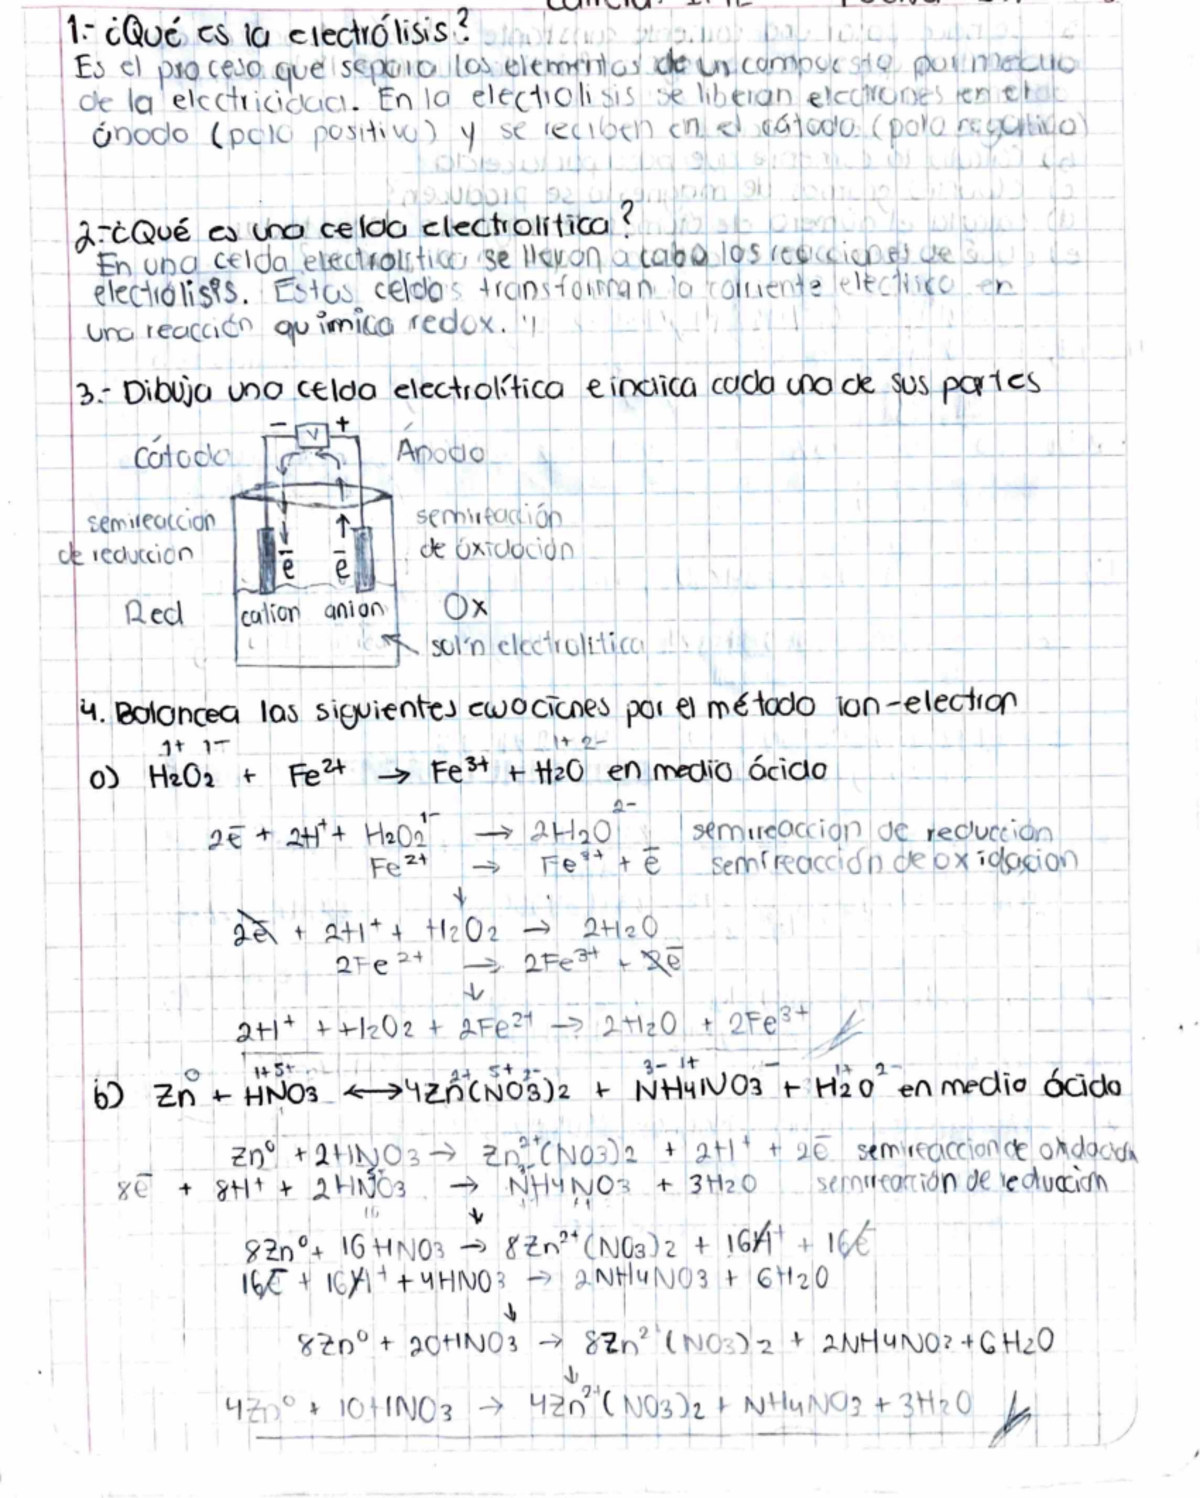 1.- ¿Qué es la electrólisis?
Es el proceso que separa los elementos de un compuesto por medio
de la electricidad. En la electrolisis se liberan electrones en el
ánodo (polo positivo) y se reciben en el cátodo (polo negativo)
2.- ¿Qué es una celda electrolítica?
En una celda electrolítica se llevan a cabo las reacciones de
electrólisis. Estas celdas transforman la corriente eléctrica en
una reacción química redox.
3.- Dibuja una celda electrolítica e indica cada una de sus partes
- V +
Cátodo Ánodo
semireaccion semireacción
de reducción de oxidación
e̅ e̅
Red cation anion Ox
sol'n electrolitica
4. Balancea las siguientes ecuaciones por el método ion-electron
1+ 1- 1+ 2-
a) H2O2 + Fe2+ → Fe3+ + H2O en medio ácido
2e̅ + 2H+ + H2O2 1- → 2H2O 2- semireaccion de reducción
Fe2+ → Fe3+ + e̅ semireacción de oxidacion
↓
2e̅ + 2H+ + H2O2 → 2H2O
2Fe2+ → 2Fe3+ + 2e̅
↓
2H+ + H2O2 + 2Fe2+ → 2H2O + 2Fe3+
0 1+ 5+ 2+ 5+ 2- 3- 1+ - 1+ 2-
b) Zn + HNO3 ↔ 4Zn(NO3)2 + NH4NO3 + H2O en medio ácido
Zn0 + 2HNO3 → Zn2+(NO3)2 + 2H+ + 2e̅ semireaccion de oxidación
8e̅ + 8H+ + 2HNO3 → NH4NO3 + 3H2O semireacción de reducción
↓
8Zn0 + 16HNO3 → 8Zn2+(NO3)2 + 16H+ + 16e̅
16e̅ + 16H+ + 4HNO3 → 2NH4NO3 + 6H2O
↓
8Zn0 + 20HNO3 → 8Zn2+(NO3)2 + 2NH4NO3 + 6H2O
↓
4Zn0 + 10HNO3 → 4Zn2+(NO3)2 + NH4NO3 + 3H2O